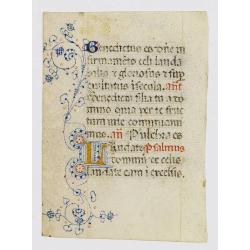 Benedictus es dñe in
firmamento celi landa
bilis & gloriosus & sup
exaltatus ĩ secula. añ
Benedicat filia tu a do
mino quia per te fructum
uite communica
mus. añ Pulchra es
Psalmus
Laudate
dominum de celis
laudate eum ĩ excelsis.